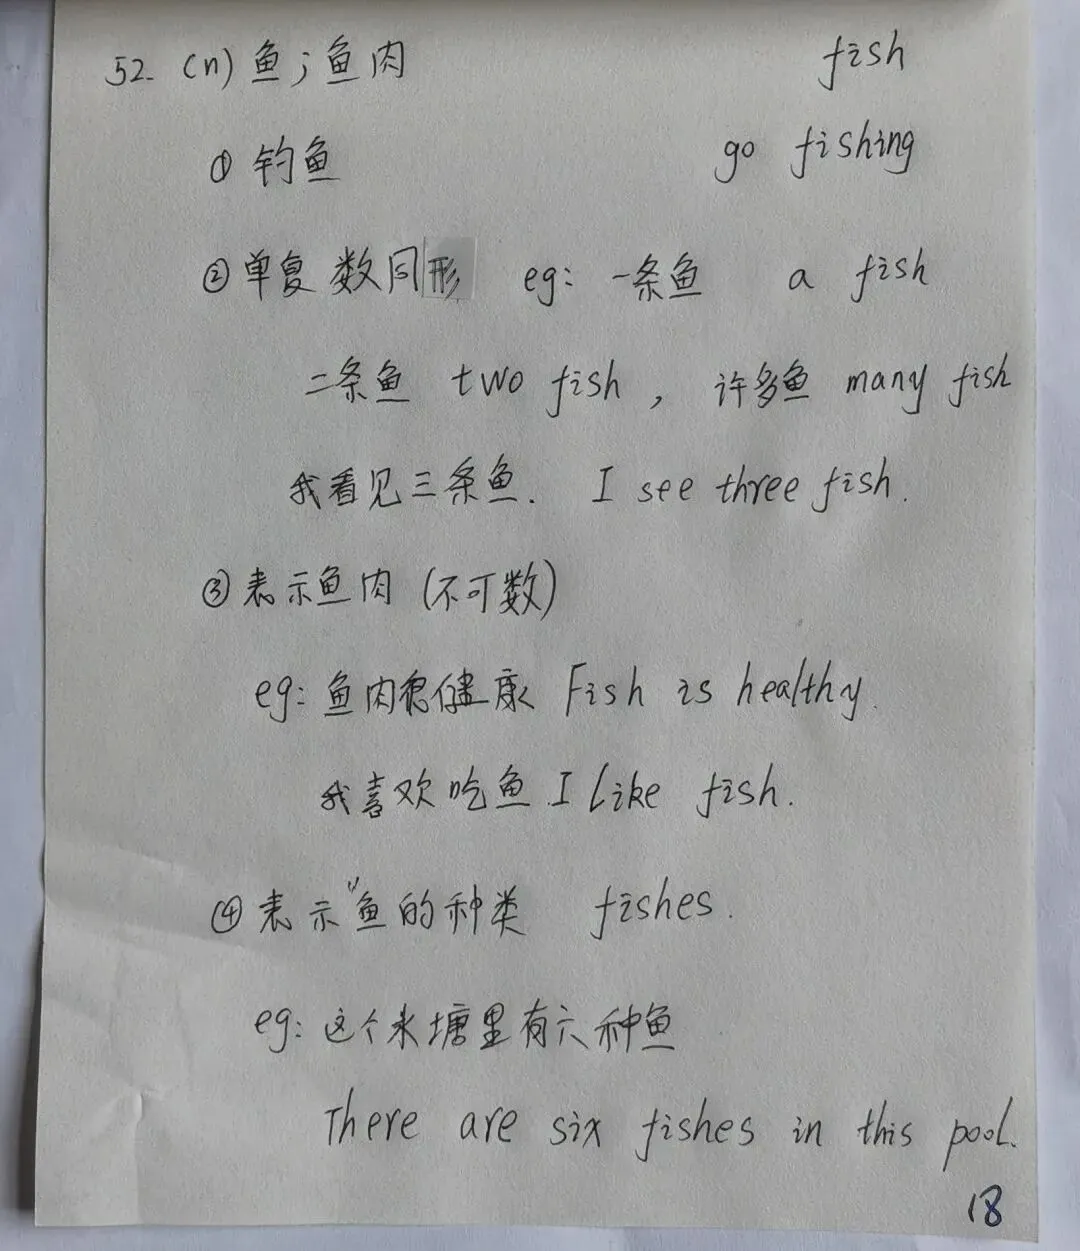 52. (n) 鱼；鱼肉 fish
① 钓鱼 go fishing
② 单复数同形 eg: 一条鱼 a fish
二条鱼 two fish , 许多鱼 many fish
我看见三条鱼. I see three fish.
③ 表示鱼肉 (不可数)
eg: 鱼肉很健康 Fish is healthy.
我喜欢吃鱼. I like fish.
④ 表示"鱼的种类 fishes.
eg: 这个水塘里有六种鱼
There are six fishes in this pool.
18